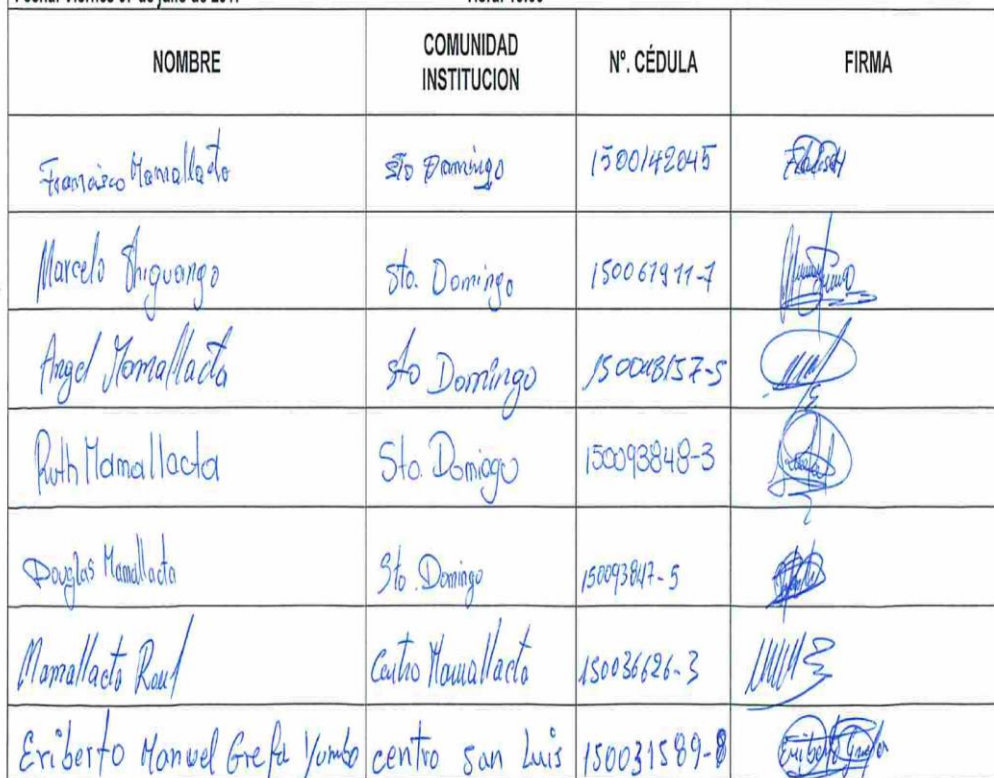 NOMBRE COMUNIDAD INSTITUCION Nº. CÉDULA FIRMA
Francisco Mamallacto Sto Domingo 1500142045
Marcelo Shiguango Sto. Domingo 150061911-1
Angel Mamallacta sto Domingo 150048157-5
Ruth Mamallacta Sto. Domiogo 150093848-3
Douglas Mamallacta Sto. Domingo 150093847-5
Mamallacta Raul Centro Mamallacta 150036626-3
Eriberto Manuel Grefa Yumbo centro San Luis 150031589-8